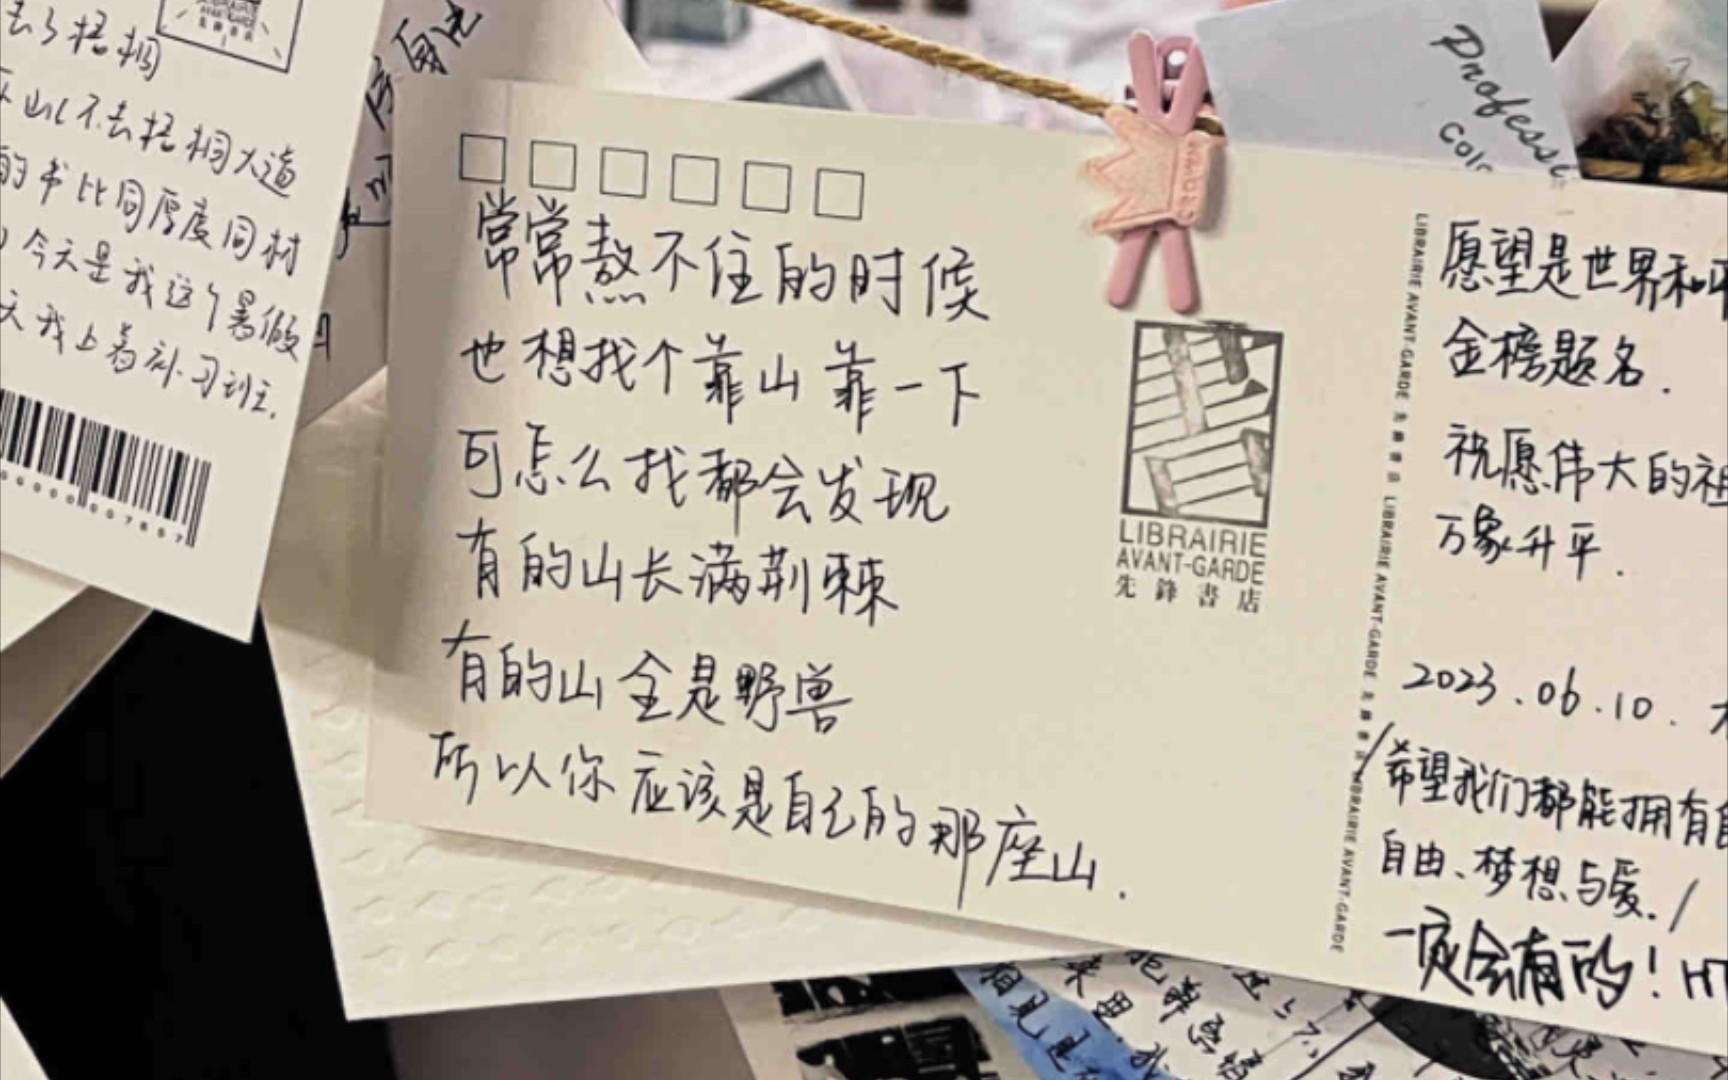 去了梧桐
山(不去梧桐大道
的书比同厚度同材
今天是我这个暑假
天我上着补习班.
常常熬不住的时候
也想找个靠山靠一下
可怎么找都会发现
有的山长满荆棘
有的山全是野兽
所以你应该是自己的那座山.
LIBRAIRIE
AVANT-GARDE
先鋒書店
LIBRAIRIE AVANT-GARDE 先鋒書店 LIBRAIRIE AVANT-GARDE 先鋒書店 LIBRAIRIE AVANT-GARDE
愿望是世界和平
金榜题名.
祝愿伟大的祖
万象升平.
2023.06.10.
/希望我们都能拥有
自由、梦想与爱./
一定会有的!
Professi
Colo